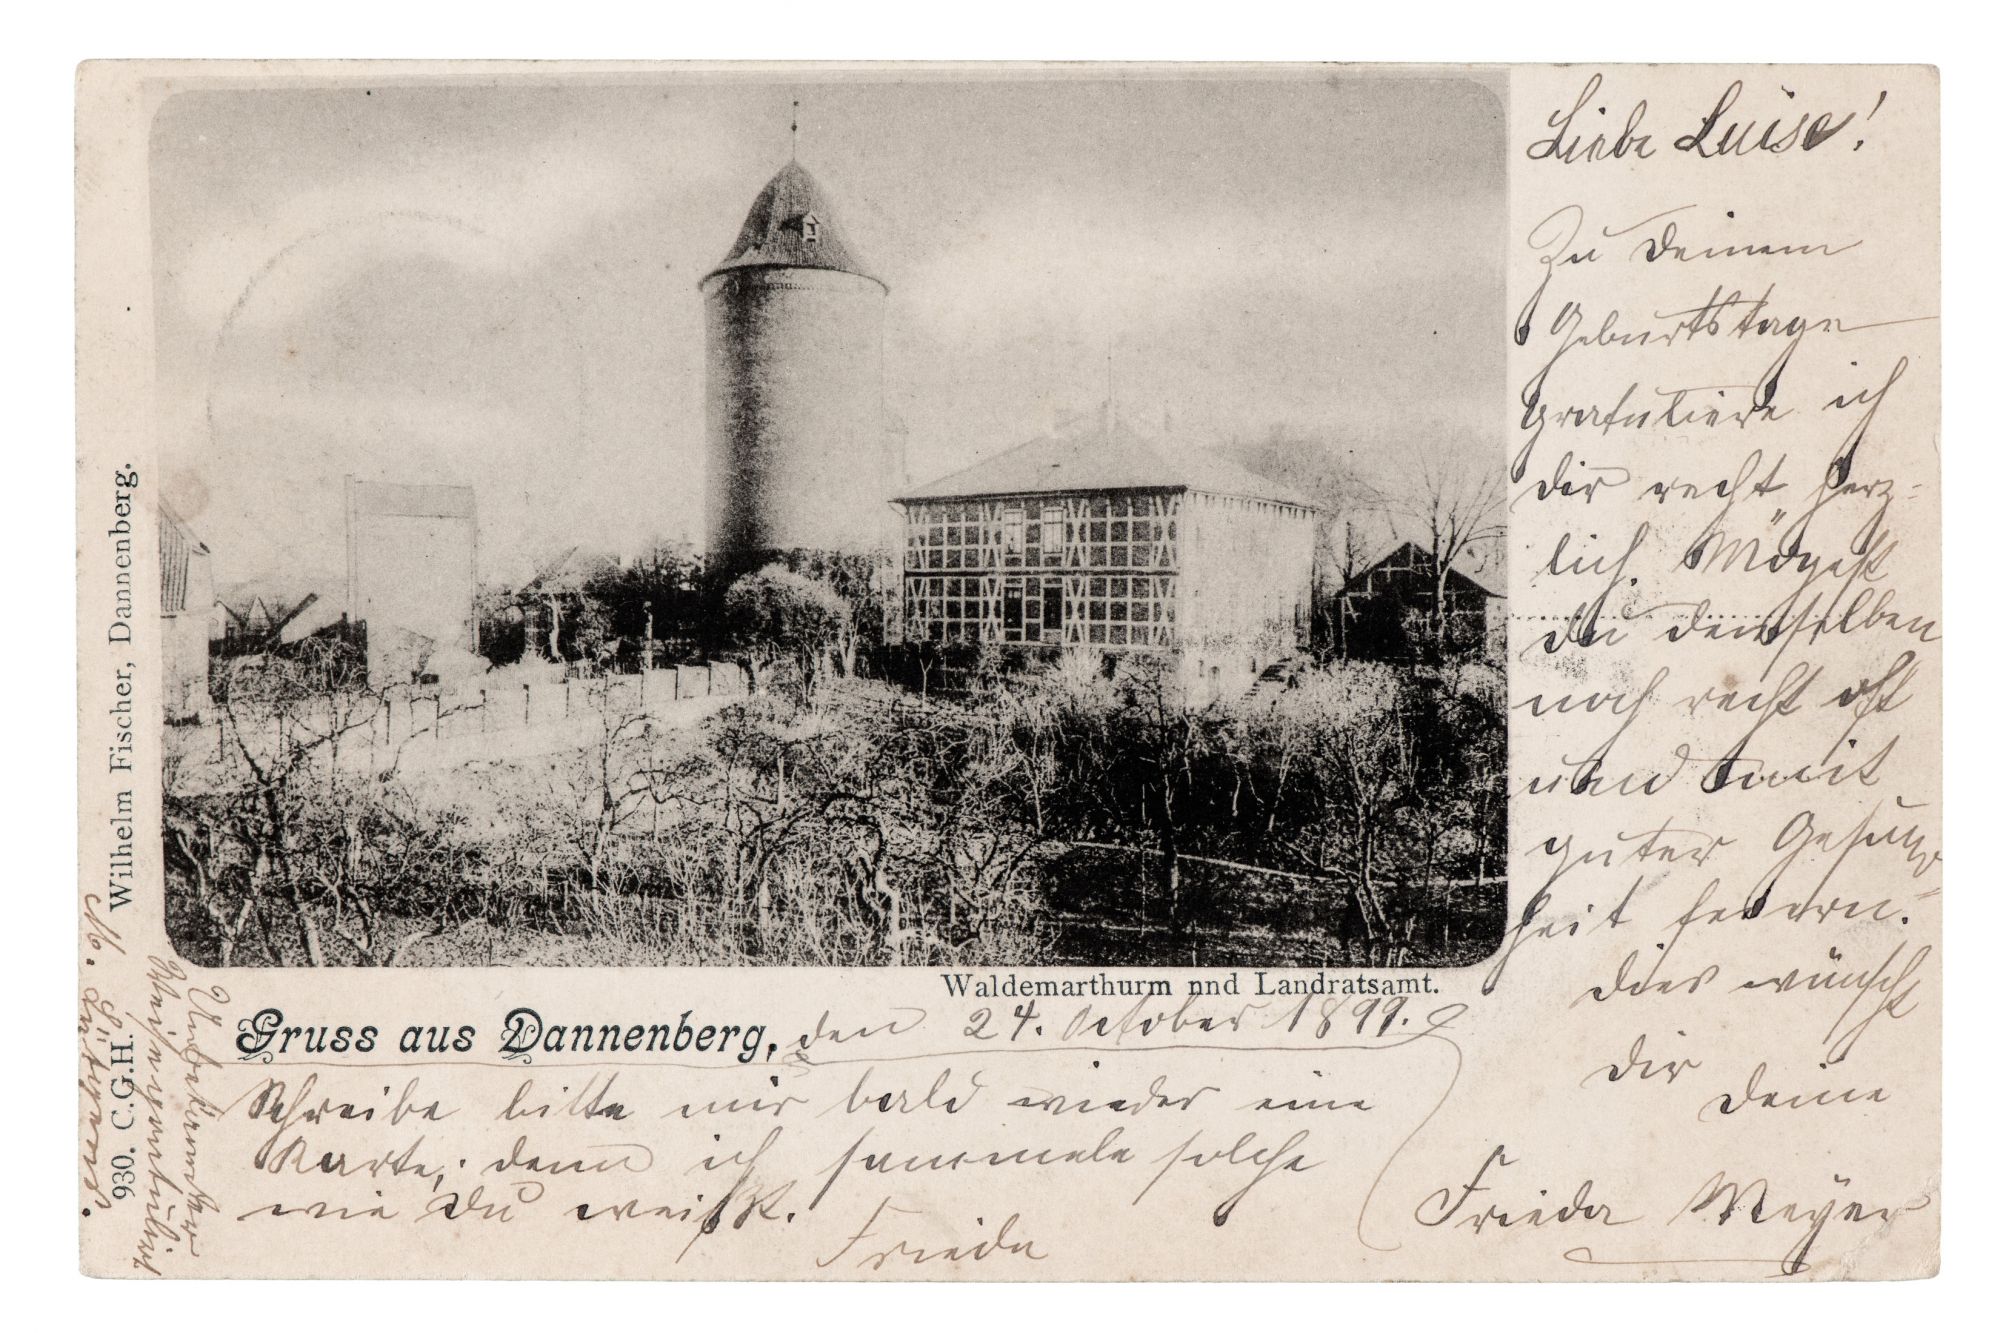 Liebe Luise!
Zu Deinem
Geburtstage
gratuliere ich
Dir recht herz-
lich. Mögest
du denselben
noch recht oft
und mit
guter Gesund-
heit feiern.
Dies wünscht
Dir
Deine
Frieda Meyer
Waldemarthurm nnd Landratsamt.
Gruss aus Dannenberg, den 24. October 1899.
Schreibe bitte mir bald wieder eine
Karte, denn ich sammele solche
wie Du weißt.
Frieda
930. C.G.H. Wilhelm Fischer, Dannenberg.
Unbekannter